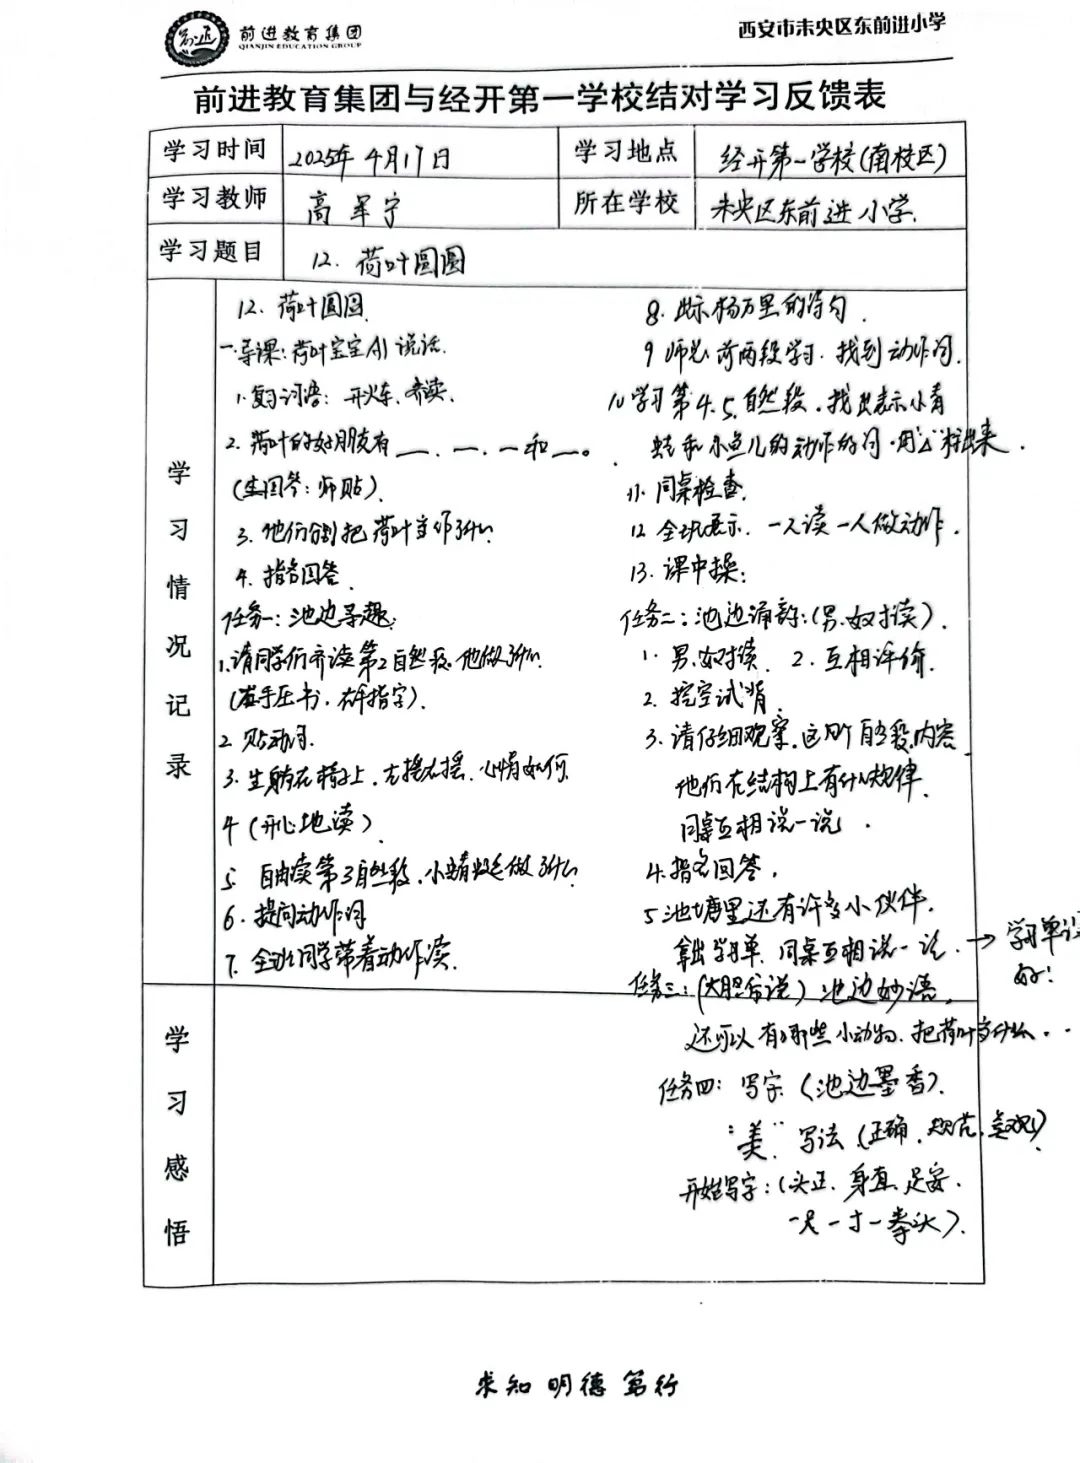 前进教育集团
QIANJIN EDUCATION GROUP
西安市未央区东前进小学
前进教育集团与经开第一学校结对学习反馈表
学习时间 2025年4月17日 学习地点 经开第一学校(南校区)
学习教师 高军宁 所在学校 未央区东前进小学.
学习题目 12. 荷叶圆圆
学习情况记录
12. 荷叶圆圆
一.导课:荷叶宝宝AI说话.
1.复习词语:开火车、齐读.
2. 荷叶的好朋友有__、一、一和__。
(生回答:师贴).
3. 他们分别把荷叶当作了什么
4. 指名回答.
任务一:池边寻趣:
1.请同学们齐读第2自然段,他做了什么.
(左手压书,右手指字).
2 贴动词.
3. 生躺在椅子上,左摇右摇,心情如何.
4 (开心地读)
5 自由读第3自然段,小蜻蜓做了什么
6. 提问动作词
7. 全班同学带着动作读.
8. 出示杨万里的诗句.
9 师总 前两段学习.找到动作词.
10 学习第4.5.自然段,找出表示小青
蛙和小鱼儿的动作的词.用"△"标出来.
11. 同桌检查.
12 全班展示.一人读一人做动作.
13. 课中操:
任务二:池边诵韵:(男、女对读).
1. 男、女对读. 2. 互相评价.
2. 挖空试背.
3. 请仔细观察,这几个自然段,内容
他们在结构上有什么规律.
同桌互相说一说.
4.指名回答.
5 池塘里还有许多小伙伴.
拿出学习单.同桌互相说一说. → 学习单设
好!
任务三:(大胆台说)池边妙语,
还可以有哪些小动物.把荷叶当什么..
任务四:写字(池边墨香).
"美"写法(正确、规范、美观)
开始写字:(头正、身直、足安.
一尺一寸一拳头).
学习感悟
求知 明德 笃行